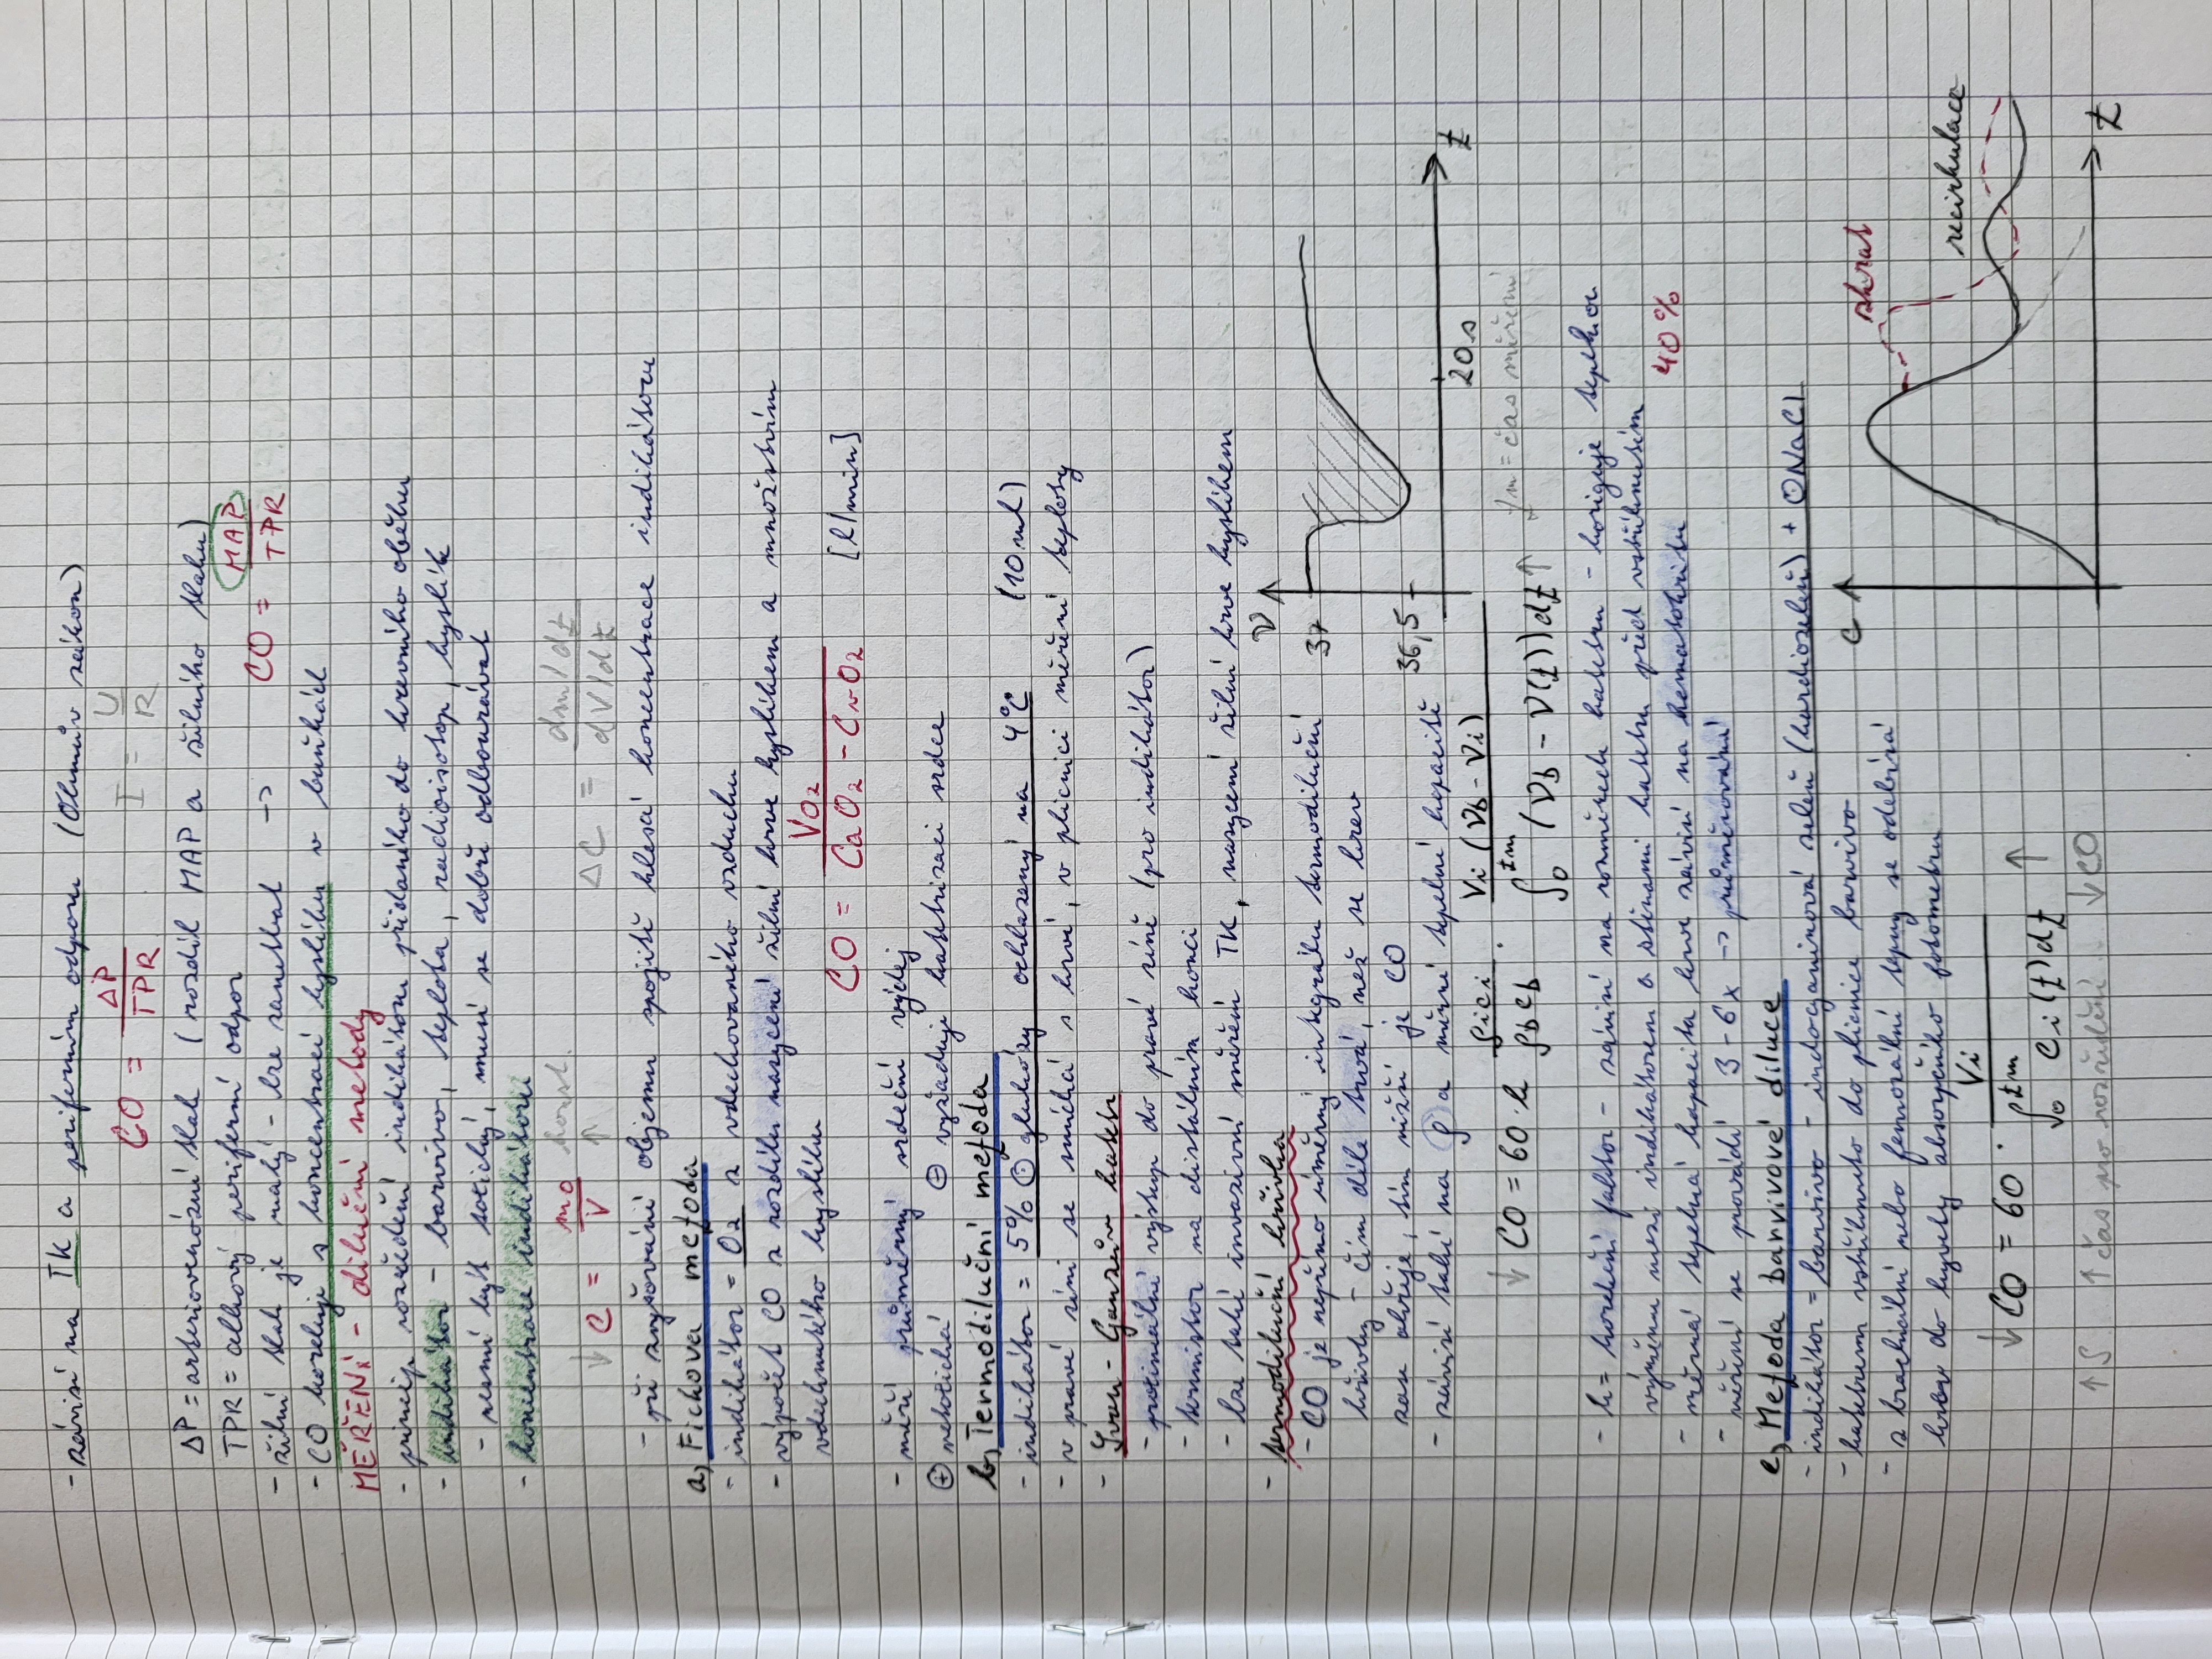 - závisí na TK a periferním odporu (Ohmův zákon)
CO = ΔP / TPR    I = U / R
ΔP = arteriovenózní tlak (rozdíl MAP a žilního tlaku)
TPR = celkový periferní odpor
- žilní tlak je malý - lze zanedbat -> CO = MAP / TPR
- CO koreluje s koncentrací kyslíku v buňkách
MĚŘENÍ - diluční metody
- princip rozředění indikátoru přidaného do krevního oběhu
- indikátor - barvivo, teplota, radioizotop, kyslík
- nesmí být toxický, musí se dobře odbourávat
- koncentrace indikátoru
↓ C = m0 / V ↑ konst.    ΔC = dm/dt / dV/dt
- při zvyšování objemu spojitě klesá koncentrace indikátoru
a) Fickova metoda
- indikátor = O2 z vdechovaného vzduchu
- výpočet CO z rozdílu nasycení žilní krve kyslíkem a množstvím
vdechnutého kyslíku
CO = VO2 / CaO2 - CvO2    [l/min]
- měří průměrný srdeční výdej
⊕ netoxická    ⊖ vyžaduje katetrizaci srdce
b) Termodiluční metoda
- indikátor = 5% ⊙ glukózy ochlazený na 4°C (10 ml)
- v pravé síni se smíchá s krví, v plicnici měření teploty
- Swan - Ganzův katetr
- proximální výstup do pravé síně (pro indikátor)
- termistor na distálním konci
- lze také invazivní měření TK, nasycení žilní krve kyslíkem
- termodiluční křivka
- CO je nepřímo úměrný integrálu termodiluční
křivky - čím déle trvá, než se krev
zase ohřeje, tím nižší je CO
- závisí také na ρ a měrné tepelné kapacitě
ϑ
37
36,5
20 s
t
↓ CO = 60 · k ρi ci / ρb cb · Vi (ϑb - ϑi) / ∫0^tm (ϑb - ϑ(t)) dt ↑
tm = čas měření
- k = korekční faktor - závisí na rozměrech katetru - koriguje tepelnou
výměnu mezi indikátorem a stěnami katetru před vstříknutím
- měrná tepelná kapacita krve závisí na hematokritu    40%
- měření se provádí 3-6x -> průměrování
c) Metoda barvivové diluce
- indikátor = barvivo - indocyaninová zeleň (kardiozeleň) + ⊙NaCl
- katetrem vstříknuto do plicnice barvivo
- z brachiální nebo femorální tepny se odebírá
krev do kyvety absorpčního fotometru
↓ CO = 60 · Vi / ∫0^tm ci(t) dt ↑
↑ S ↑ čas pro rozředění .. ↓ CO
c
zkrat
recirkulace
t